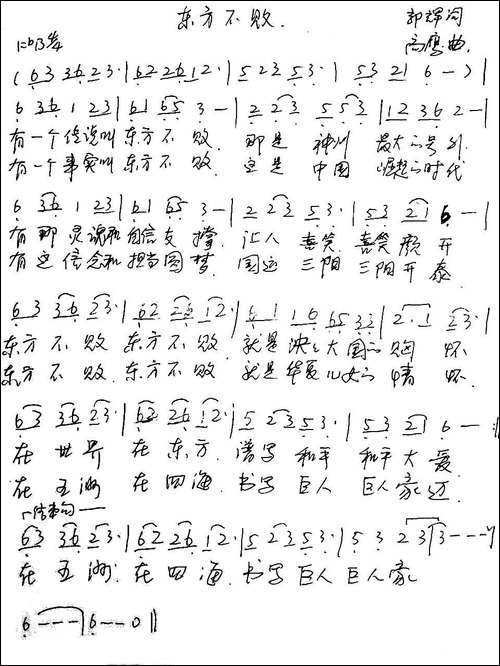 东方不败.
1=bB 4/4
郭辉词
高鹰曲.
(63 36 23·|62 26 12·|5 23 53·|53 21 6 —)|
6 36 1 23|61 65 3 —|2 23 553|12 36 2 —|
有一个传说叫东方不败. 那是 神州 最大的号外.
有一个事实叫东方不败. 这是 中国 崛起的时代
6 36 1 23|61 65 3 —|2 23 53·|53 21 6 —|
有那灵魂和自信支撑. 让人 喜笑 喜笑颜开
有这信念和担当圆梦. 国运 三阳 三阳开泰
63 36 23·|62 26 12·|61 16 65 33|2·1 23·|
东方不败. 东方不败. 就是泱泱大国的胸怀
东方不败. 东方不败. 就是华夏儿女的情怀.
63 36 23·|62 26 12·|5 23 53·|53 21 6 —:||
在世界 在东方. 谱写 和平 和平大爱
在五洲 在四海. 书写 巨人 巨人豪迈.
结束句——
63 36 23·|62 26 12·|5 23 53·|53 23|3 — — —|
在五洲. 在四海. 书写巨人 巨人豪
6 — — —|6 — — 0||